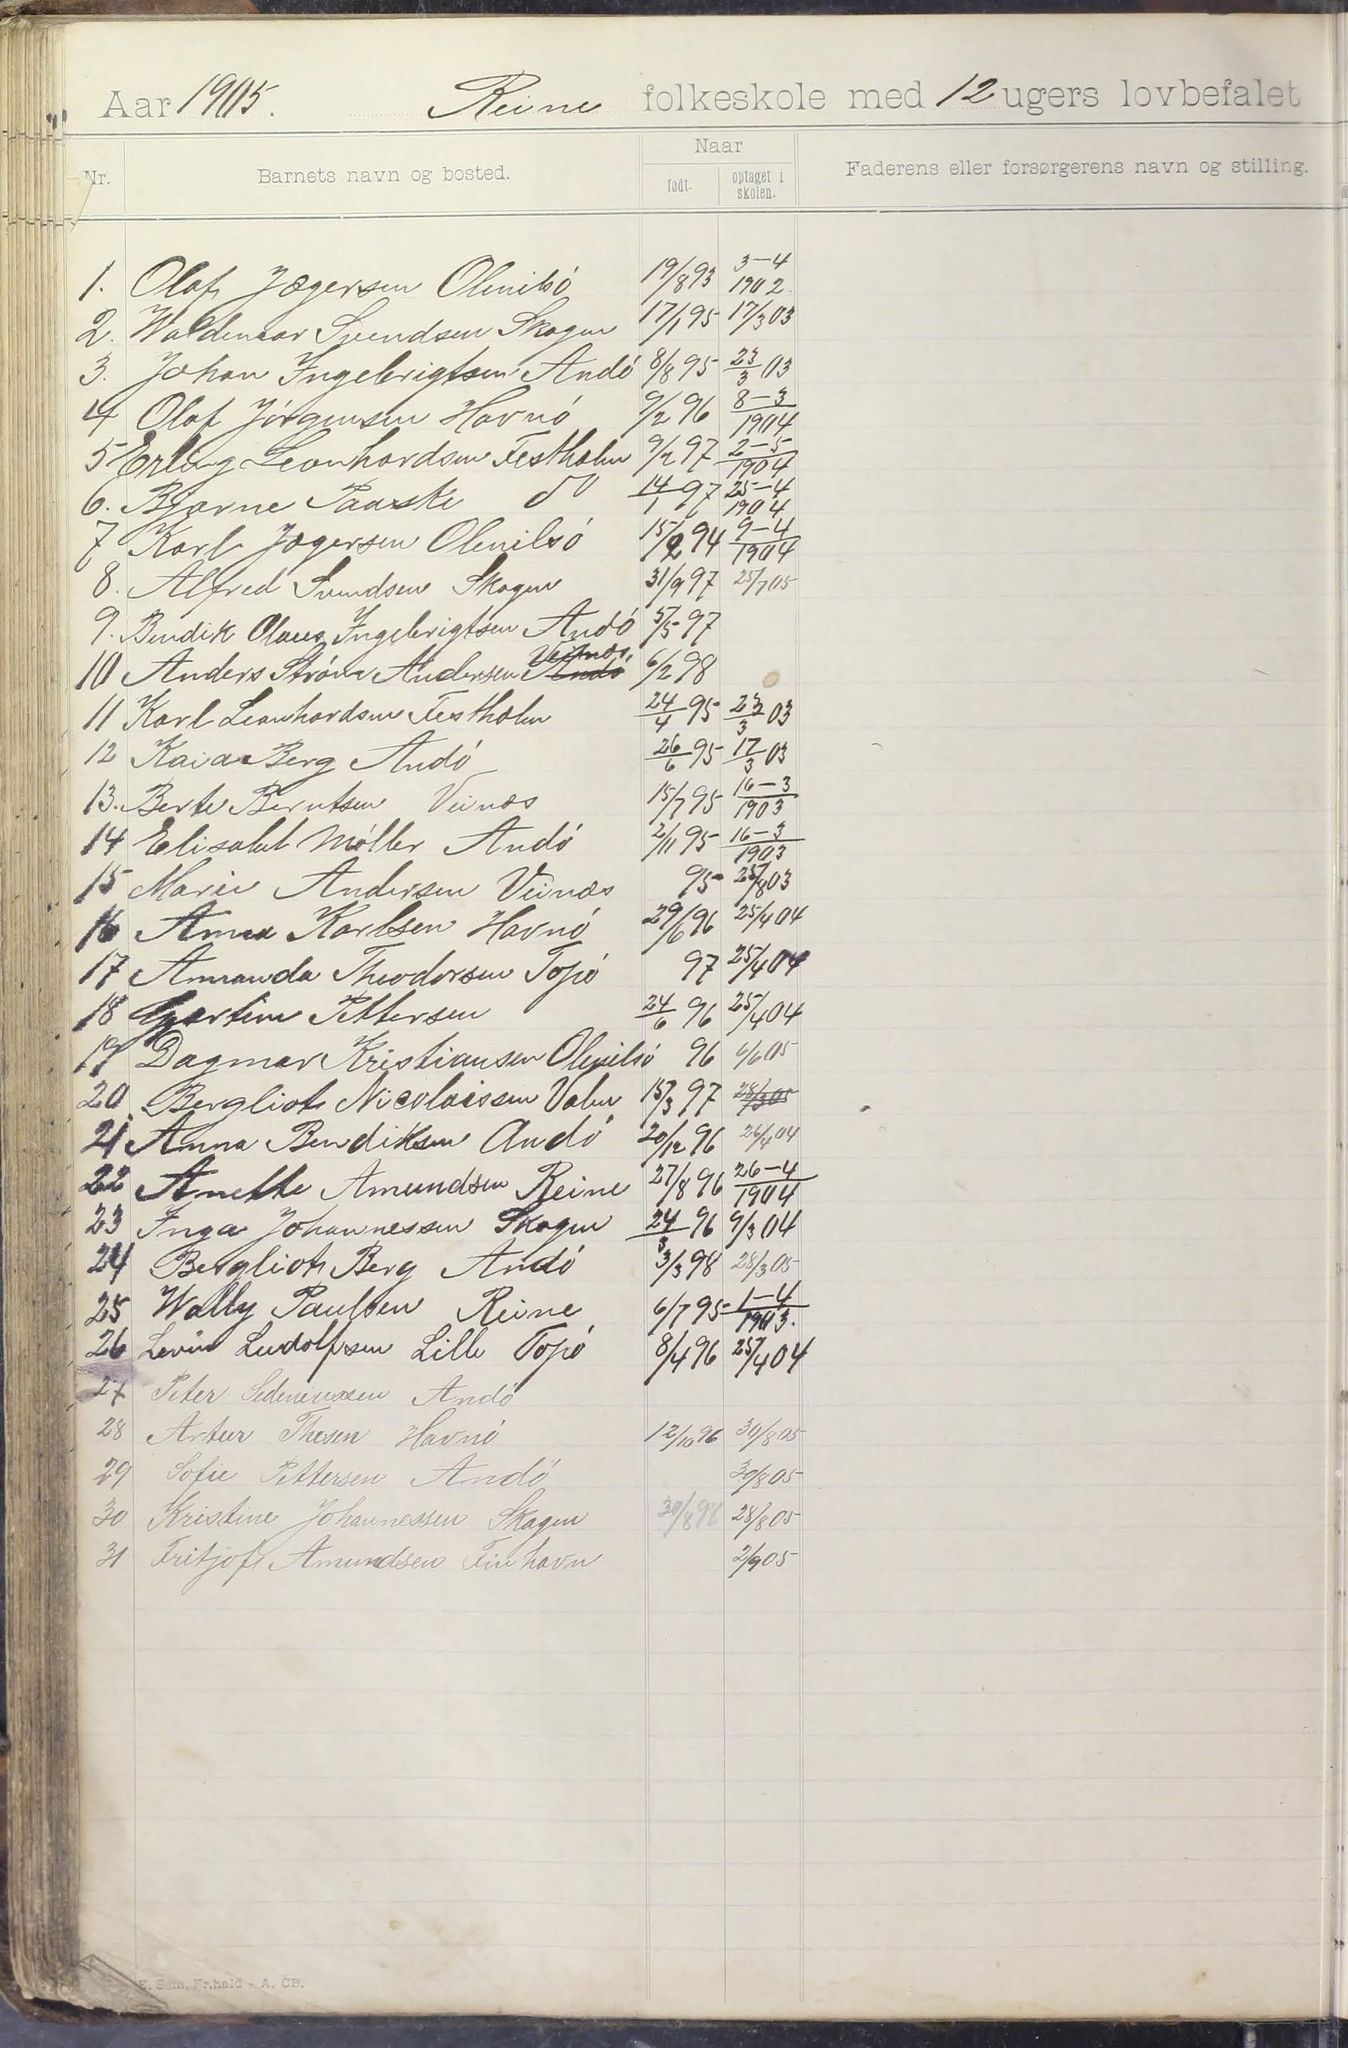 Aar 1905. Reine folkeskole med 12 ugers lovbefalet
Nr. Barnets navn og bosted. Naar Faderens eller forsørgerens navn og stilling.
født. optaget i skolen.
1. Olaf Jægersen Olenilsö 19/8 93 3-4 1902.
2. Waldemar Svendsen Skagen 17/1 95 17/3 03
3. Johan Ingebrigtsen Andö 8/8 95 23/3 03
4 Olaf Jörgensen Havnö 9/2 96 8-3 1904
5 Erling Leonhardsen Festholm 9/2 97 2-5 1904
6. Bjarne Paaske do 14/1 97 25-4 1904
7 Karl Jægersen Olenilsö 15/2 94 9-4 1904
8. Alfred Svendsen Skagen 31/9 97 25/7 05
9. Bendik Olaus Ingebrigtsen Andö 5/5 97
10 Anders Ström Andersen Andö Veinæs. 6/2 98
11 Karl Leonhardsen Festholm 24/4 95 23/3 03
12 Kaia Berg Andö 26/6 95 17/3 03
13. Berte Berntsen Veinæs 15/7 95 16-3 1903
14 Elisabet Möller Andö 2/11 95 16-3 1903
15 Marie Andersen Veinæs 95 25/8 03
16 Anna Karlsen Havnö 29/6 96 25/4 04
17 Amanda Theodorsen Topö 97 25/4 04
18 Pettersen 24/6 96 25/4 04
19 Dagmar Kristiansen Olenilsö 96 6/6 05
20 Bergliot Nicolaissen Valen 15/3 97 28/3 05
21 Anna Bendiksen Andö 20/12 96 26/4 04
22 Anette Amundsen Reine 27/8 96 26-4 1904
23 Inga Johannessen Skagen 24/3 96 9/3 04
24 Bergliot Berg Andö 3/3 98 28/3 05
25 Wally Paulsen Reine 6/7 95 1-4 1903.
26 Levin Ludolfsen Lille Topö 8/4 96 25/4 04
27 Peter Andö
28 Artur Thesen Havnö 12/10 96 30/8 05
29 Sofie Pettersen Andö 30/8 05
30 Kristine Johannessen Skagen 30/8 98 28/8 05
31 Fritjof Amundsen Finhavn 2/9 05
E. Sem, Fr.hald - A. CB.